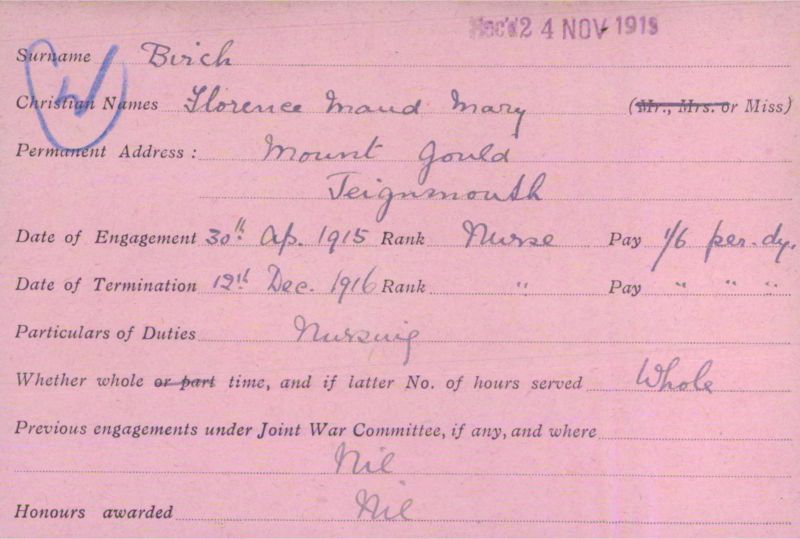 Rec'd 24 NOV 1919
W
Surname Birch
Christian Names Florence Maud Mary (Mr., Mrs. or Miss)
Permanent Address: Mount Gould
Teignmouth
Date of Engagement 30th Ap. 1915 Rank Nurse Pay 1/6 per. dy.
Date of Termination 12th Dec. 1916 Rank " Pay " " "
Particulars of Duties Nursing
Whether whole or part time, and if latter No. of hours served Whole
Previous engagements under Joint War Committee, if any, and where
Nil
Honours awarded Nil